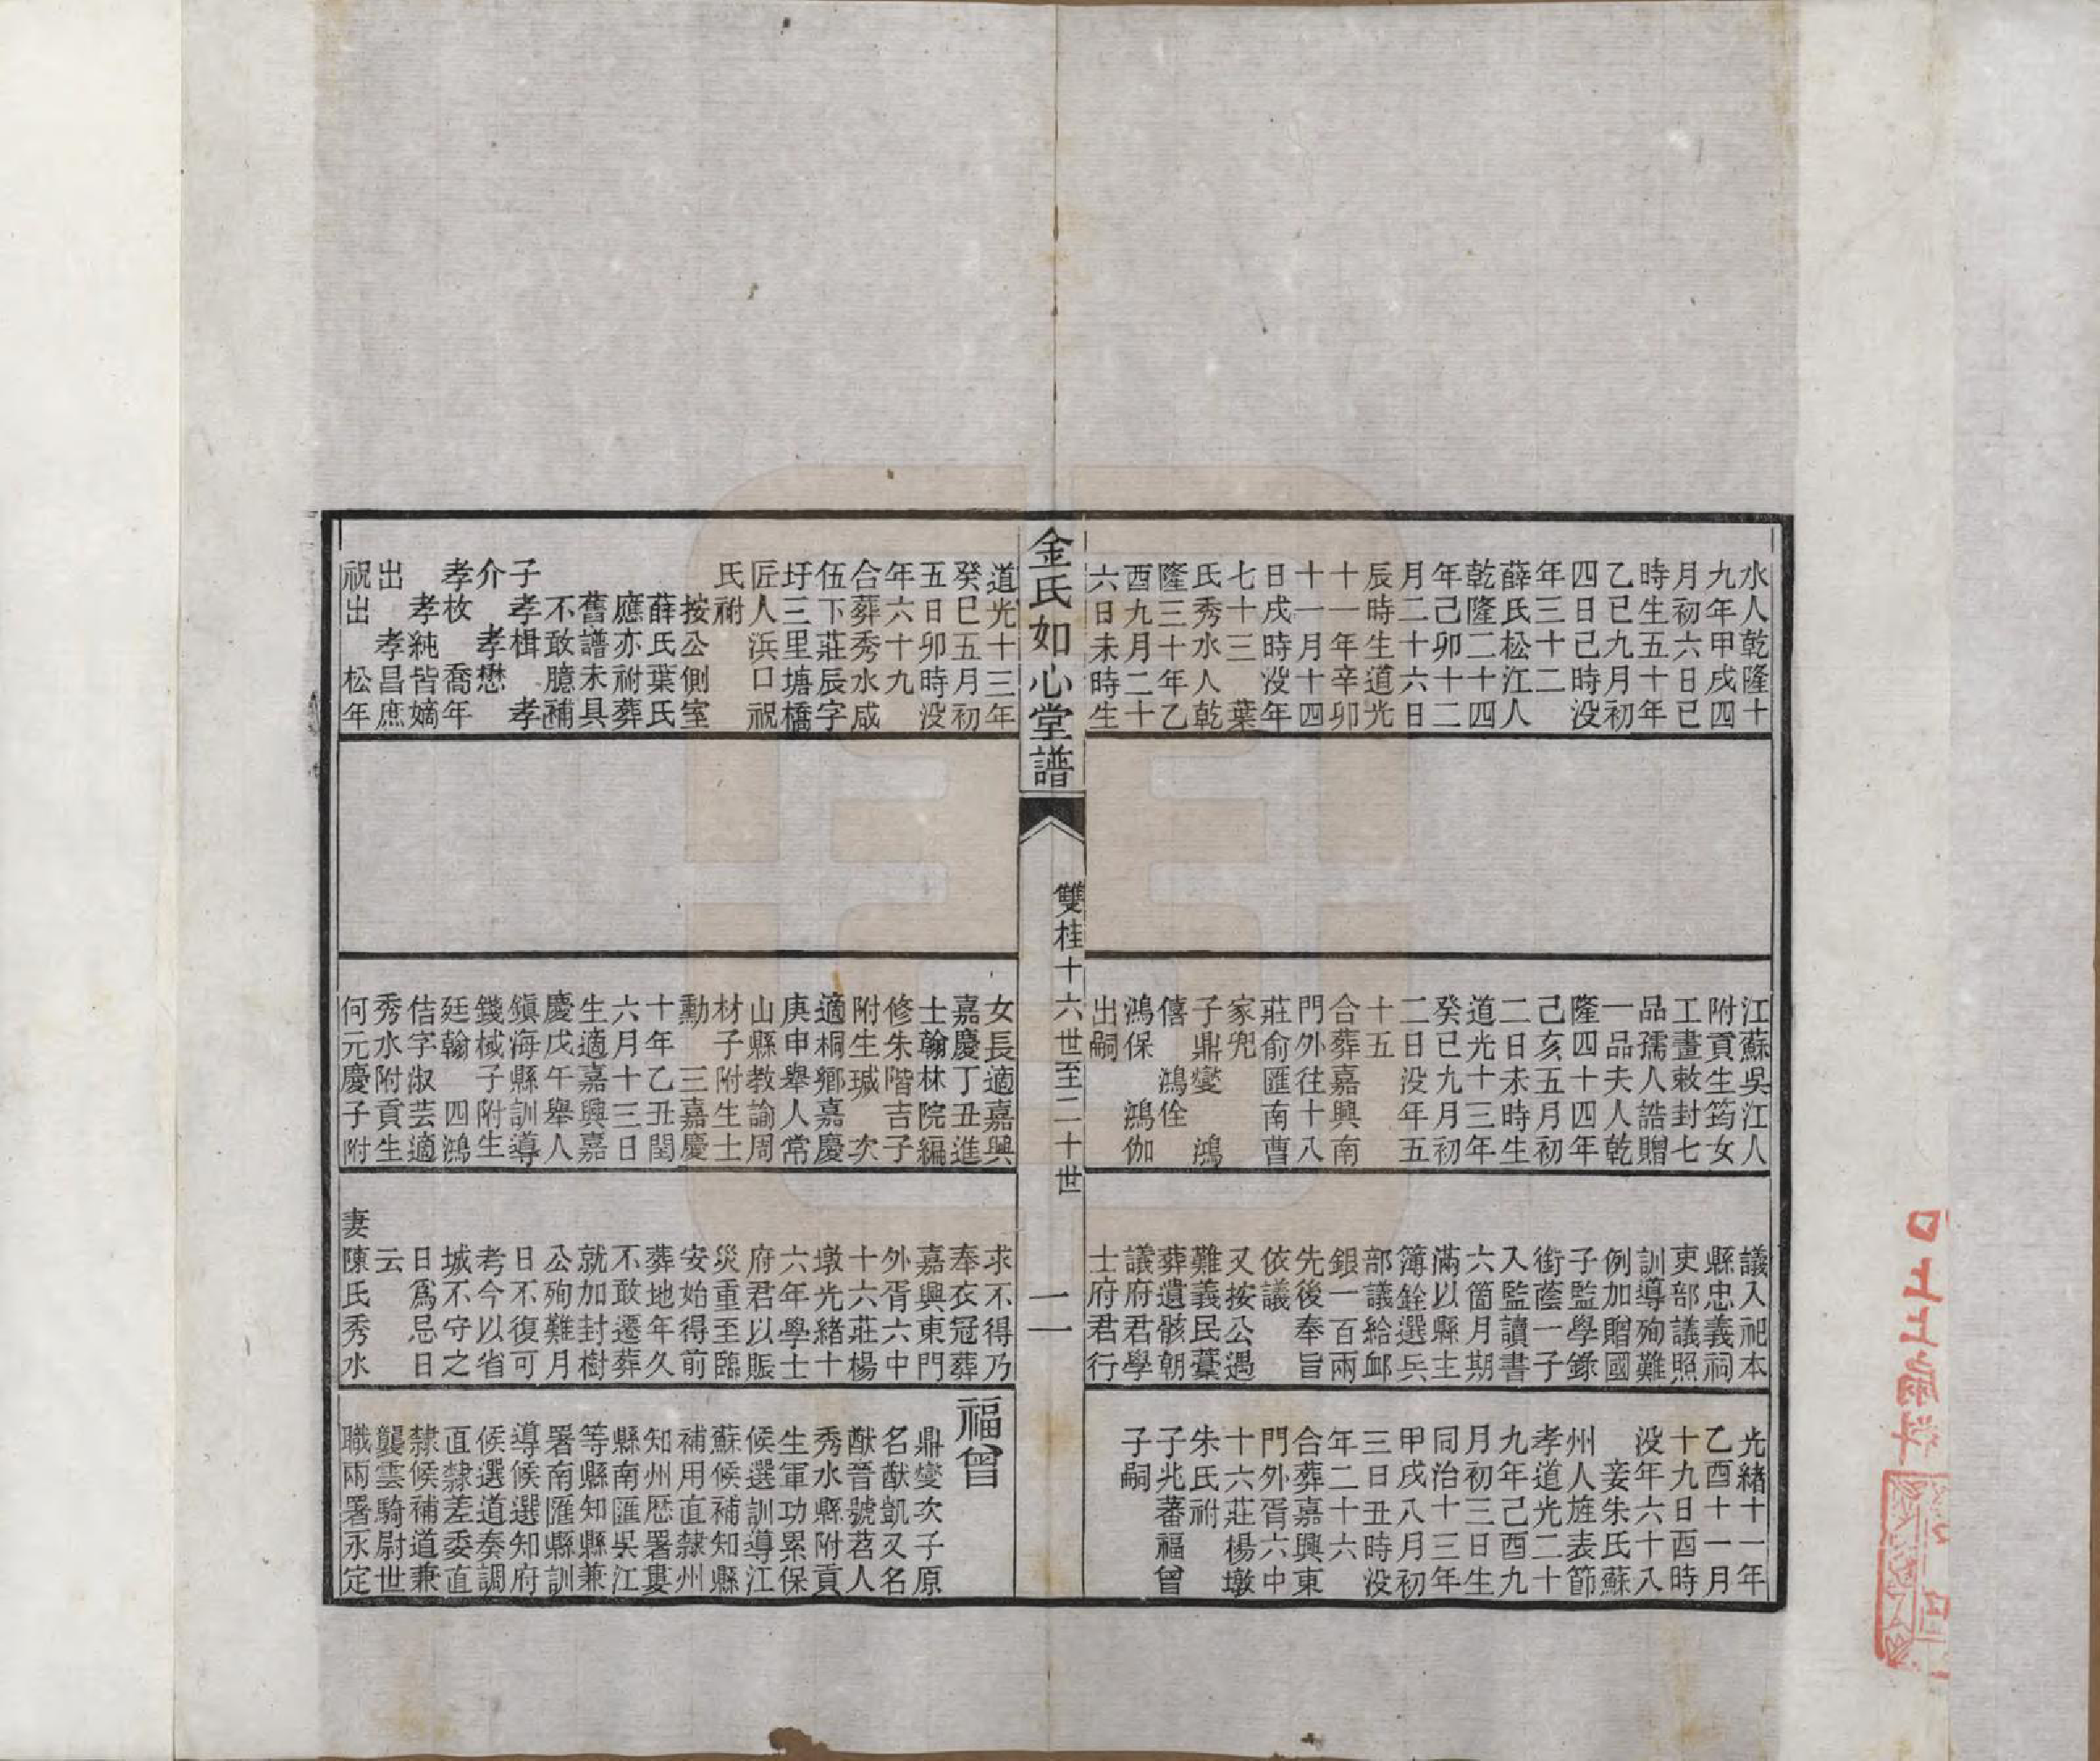 水人乾隆十
九年甲戌四
月初六日巳
時生五十年
乙巳九月初
四日巳時没
年三十二
薛氏松江人
乾隆二十四
年己卯十二
月二十六日
辰時生道光
十一年辛卯
十一月十四
日戌時没年
七十三　葉
氏秀水人乾
隆三十年乙
酉九月二十
六日未時生
江蘇吳江人
附貢生筠女
工畫敕封七
品孺人誥贈
一品夫人乾
隆四十四年
己亥五月初
二日未時生
道光十三年
癸巳九月初
二日没年五
十五
合葬嘉興南
門外往十八
莊俞匯南曹
家兜
子鼎燮　鴻
僖　鴻佺
鴻保　鴻伽
出嗣
議入祀本
縣忠義祠
吏部議照
訓導殉難
例加贈國
子監學錄
銜蔭一子
入監讀書
六箇月期
滿以縣主
簿銓選兵
部議給卹
銀一百兩
先後奉旨
依議
又按公遇
難義民藁
葬遺骸朝
議府君學
士府君行
光緒十一年
乙酉十一月
十九日酉時
没年六十八
妾朱氏蘇
州人旌表節
孝道光二十
九年己酉九
月初三日生
同治十三年
甲戌八月初
三日丑時没
年二十六
合葬嘉興東
門外胥六中
十六莊楊墩
朱氏祔
子兆蕃福曾
子嗣
金氏如心堂譜
雙桂十六世至二十世
二
道光十三年
癸巳五月初
五日卯時没
年六十九
合葬秀水咸
伍下莊辰字
圩三里塘橋
匠人浜口祝
氏祔
按公側室
薛氏葉氏
應亦祔葬
舊譜未具
不敢臆補
子孝楫　孝
介　孝懋
孝枚　喬年
孝純皆嫡
出　孝昌庶
祝出　松年
女長適嘉興
嘉慶丁丑進
士翰林院編
修朱階吉子
附生瑊　次
適桐鄉嘉慶
庚申舉人常
山縣教諭周
材子附生士
勳　三嘉慶
十年乙丑閏
六月十三日
生適嘉興嘉
慶戊午舉人
鎭海縣訓導
錢棫子附生
廷翰　四鴻
佶字淑芸適
秀水附貢生
何元慶子附
求不得乃
奉衣冠葬
嘉興東門
外胥六中
十六莊楊
墩光緒十
六年學士
府君以賑
災重至臨
安始得前
葬地年久
不敢遷葬
就加封樹
公殉難月
日不復可
考今以省
城不守之
日爲忌日
云
妻陳氏秀水
福曾
鼎燮次子原
名猷凱又名
猷晉號苕人
秀水縣附貢
生軍功累保
候選訓導江
蘇候補知縣
補用直隸州
知州歷署婁
縣南匯吳江
等縣知縣兼
署南匯縣訓
導候選知府
候選道奏調
直隸差委直
隸候補道兼
襲雲騎尉世
職兩署永定